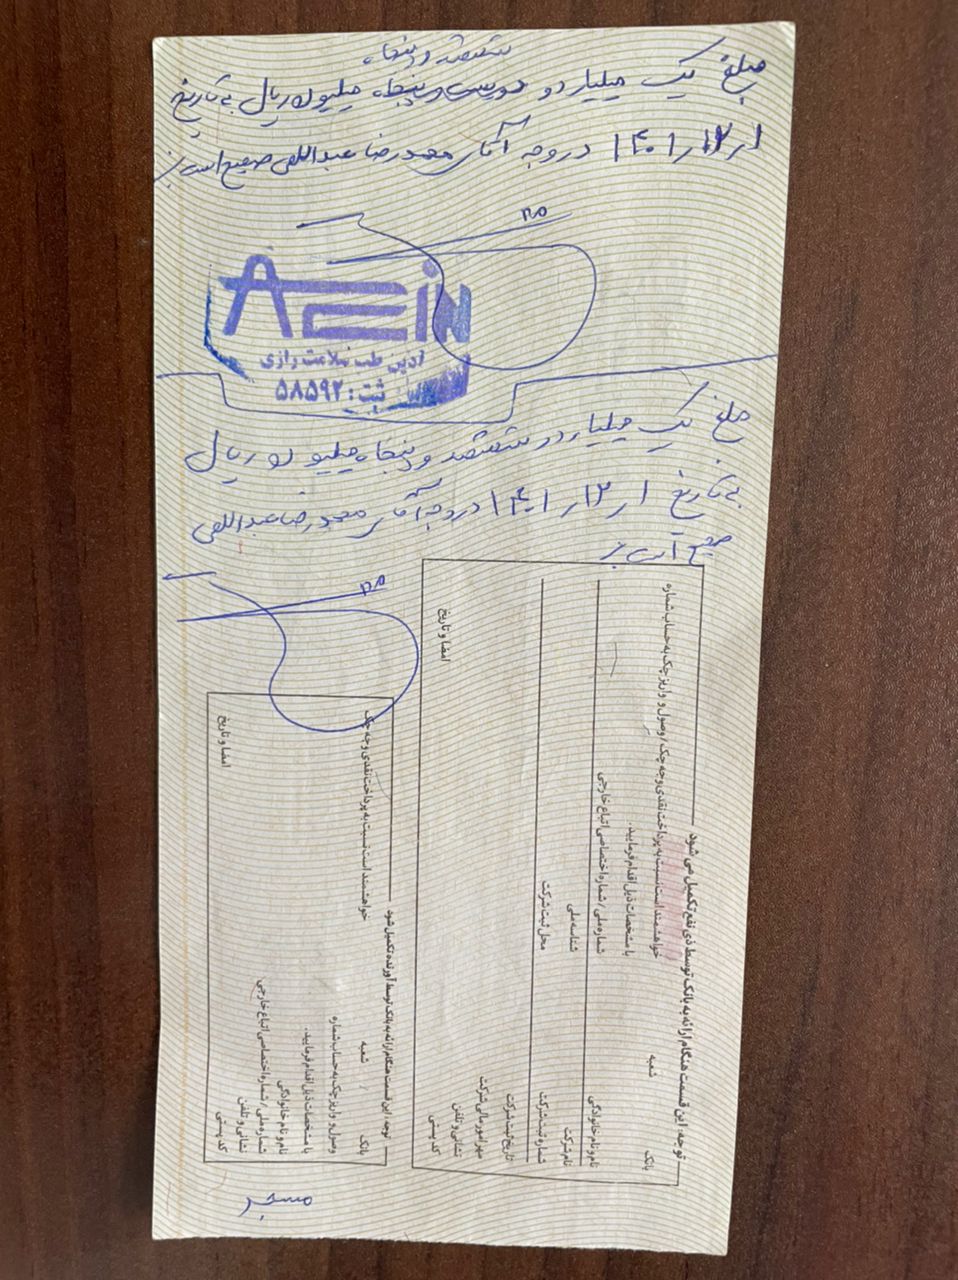 ششصد و پنجاه
مبلغ یک میلیارد و دویست و پنجاه میلیون ریال به تاریخ
۱۴۰۱/۱۲/۱ در وجه آقای محمدرضا عبداللهی صحیح است
AZIN
آذین طب سلامت رازی
ثبت: ۵۸۵۹۲
مبلغ یک میلیارد و ششصد و پنجاه میلیون ریال
به تاریخ ۱۴۰۱/۱۲/۱ در وجه آقای محمدرضا عبداللهی
صحیح است
توجه: این قسمت هنگام ارائه به بانک توسط ذی نفع تکمیل می شود
بانک شعبه
خواهشمند است نسبت به پرداخت نقدی وجه چک / وصول و واریز چک به حساب شماره
با مشخصات ذیل اقدام فرمایید.
نام و نام خانوادگی شماره ملی / شماره اختصاصی اتباع خارجی
نام شرکت شناسه ملی
شماره ثبت شرکت محل ثبت شرکت
تاریخ ثبت شرکت
مهر امور مالی شرکت
نشانی و تلفن
کد پستی امضا و تاریخ
توجه: این قسمت هنگام ارائه به بانک توسط آورنده تکمیل شود
بانک / شعبه خواهشمند است نسبت به پرداخت نقدی وجه چک
وصول و واریز چک به حساب شماره
با مشخصات ذیل اقدام فرمایید.
نام و نام خانوادگی
شماره ملی / شماره اختصاصی اتباع خارجی
نشانی و تلفن
کد پستی امضا و تاریخ